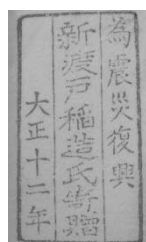 為震災復興
新渡戸稲造氏寄贈
大正十二年